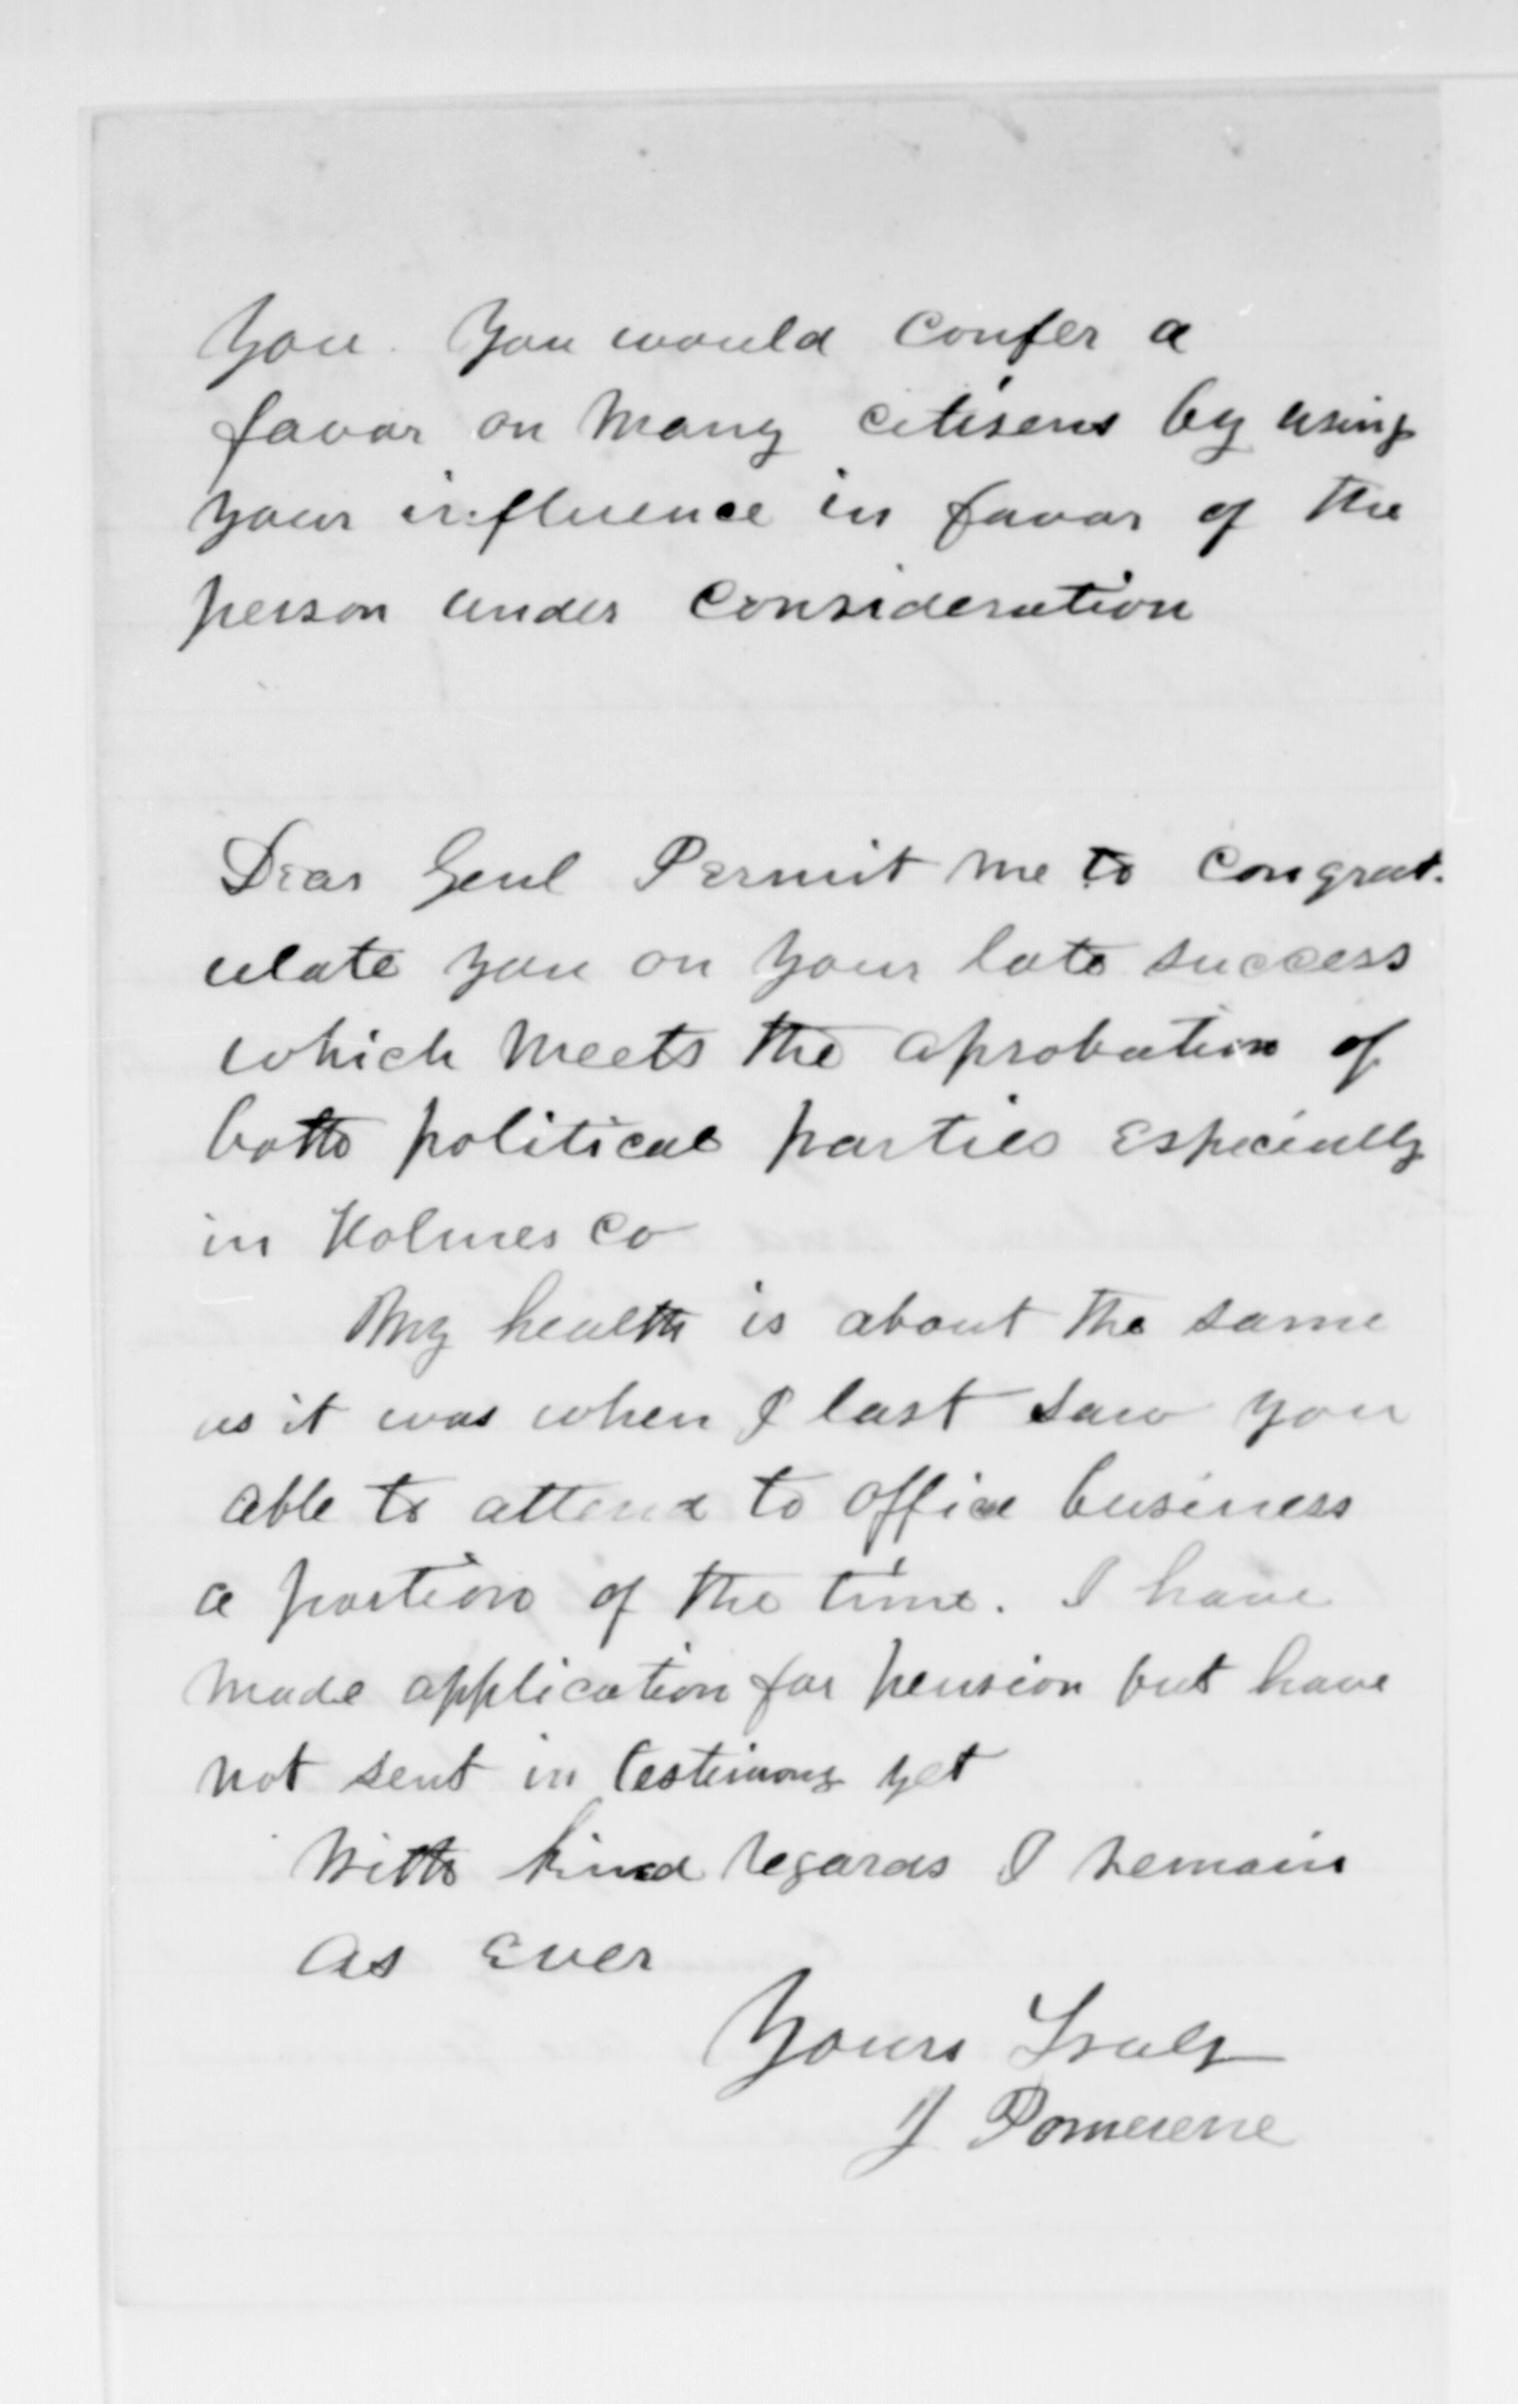 You. You would confer a
favor on many citisens by using
your influence in favor of the
person under consideration
Dear Genl Permit me to congrat-
ulate you on your late success
which meets the aprobation of
both political parties especially
in Holmes Co
My health is about the same
as it was when I last saw you
able to attend to office business
a portion of the time. I have
made application for pension but have
not sent in testimony yet
With kind regards I remain
as ever
Yours Truly
J Pomerene